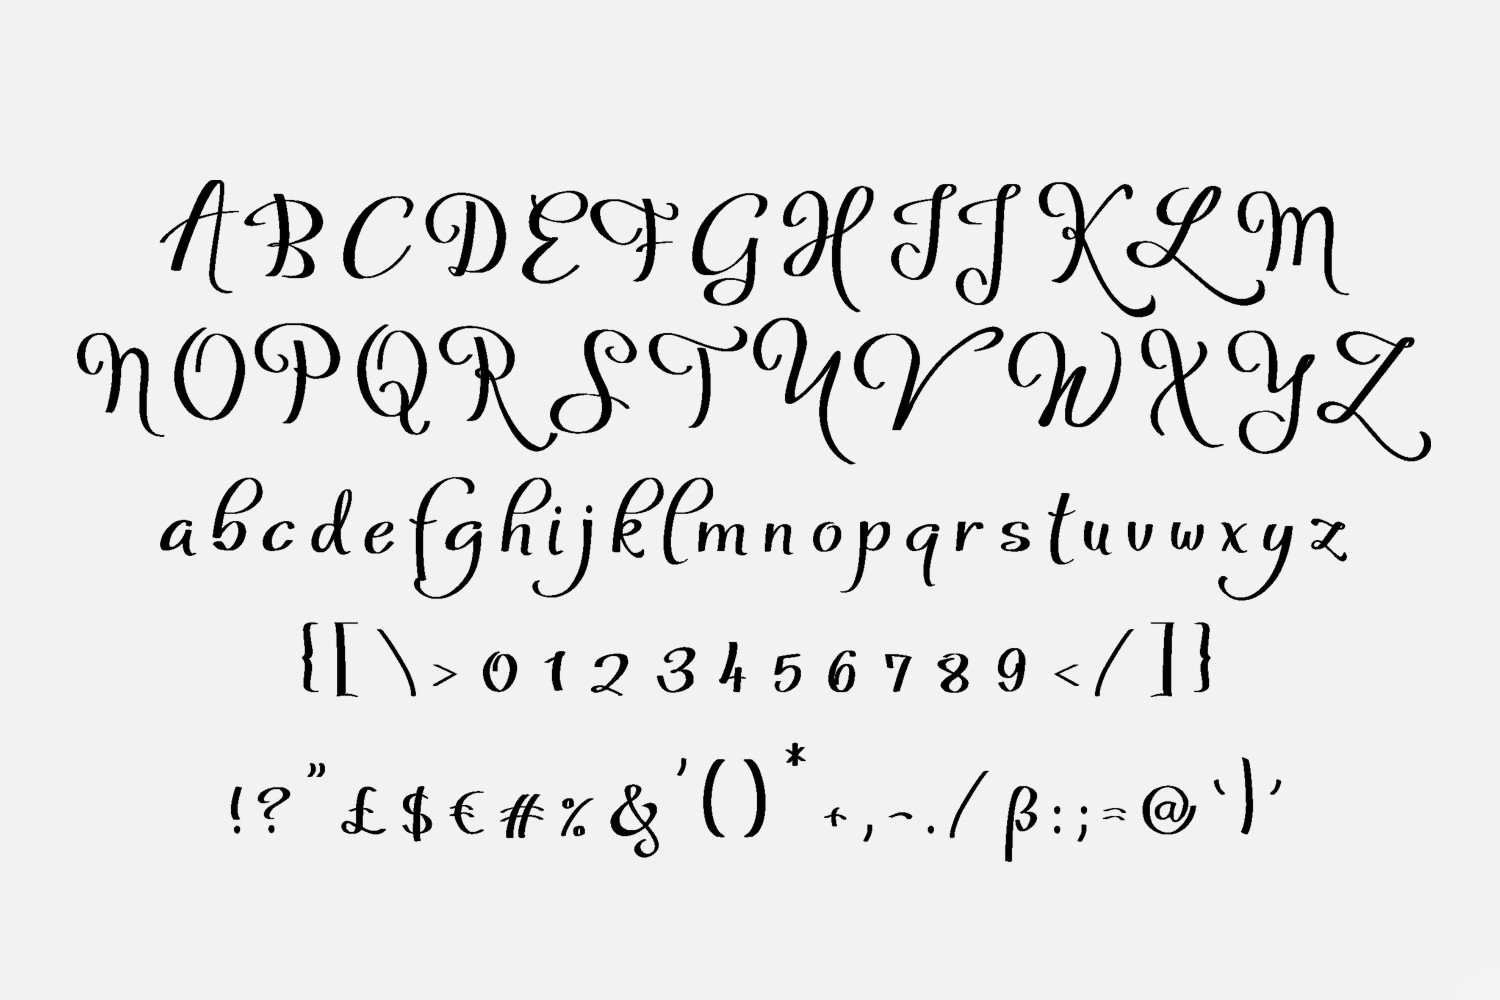 ABCDEFGHIJKLM
NOPQRSTUVWXYZ
abcdefghijklmnopqrstuvwxyz
{[\>0123456789</]}
!?”£$€#%&'()*+,-./β:;=@‘|’